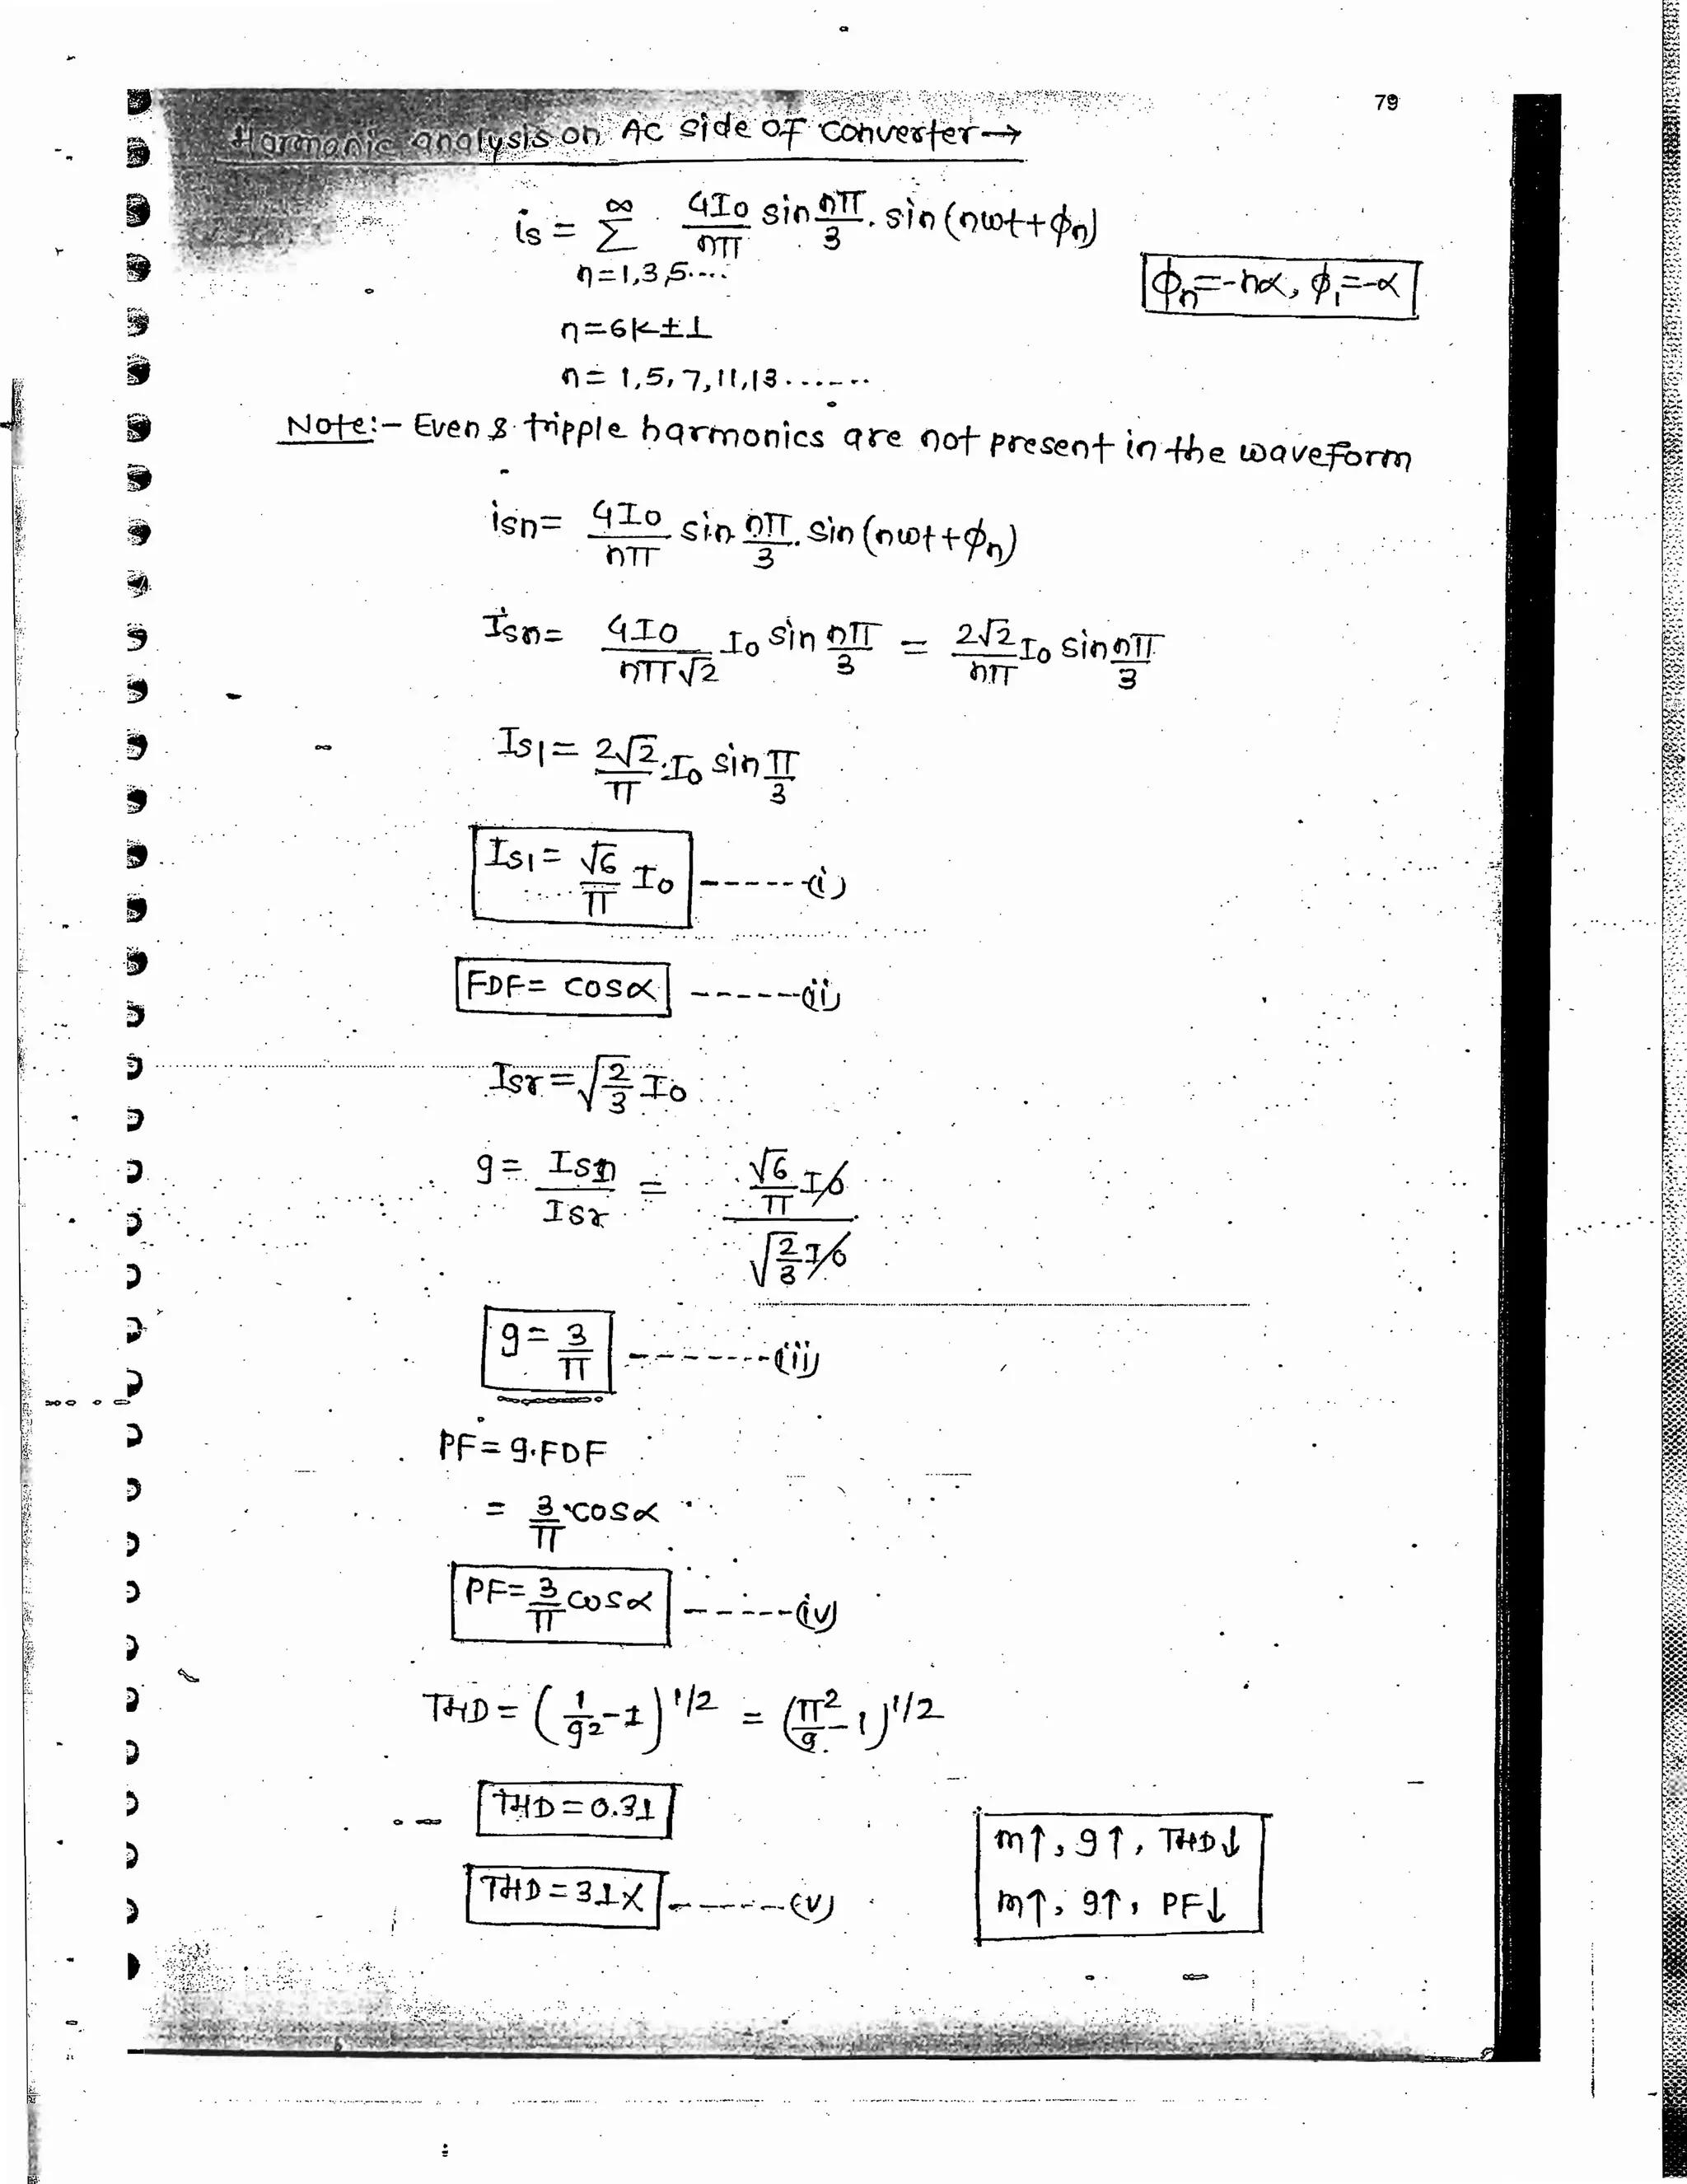 79
Harmonic analysis on AC side of converter→
is = ∞Σn=1,3,5.... 4Io/nπ sin nπ/3 . sin(nωt+ϕn)
ϕn=-nα, ϕ1=-α
n=6k±1
n= 1,5,7,11,13.......
Note:- Even & tripple harmonics are not present in the waveform
isn= 4Io/nπ sin nπ/3 . sin(nωt+ϕn)
Isn= 4Io/nπ√2 Io sin nπ/3 = 2√2/nπ Io sin nπ/3
Is1= 2√2/π . Io sin π/3
Is1= √6/π Io ------(i)
FDF= cosα ------(ii)
Isr=√2/3 Io
g= Is1/Isr = √6/π Io / √2/3 Io
g= 3/π -------(iii)
PF= g.FDF
= 3/π .cosα
PF= 3/π cosα ------(iv)
THD= (1/g2 -1)1/2 = (π2/9 -1)1/2
THD=0.31
m↑, g↑, THD↓
THD=31% ------(v)
m↑, g↑, PF↓